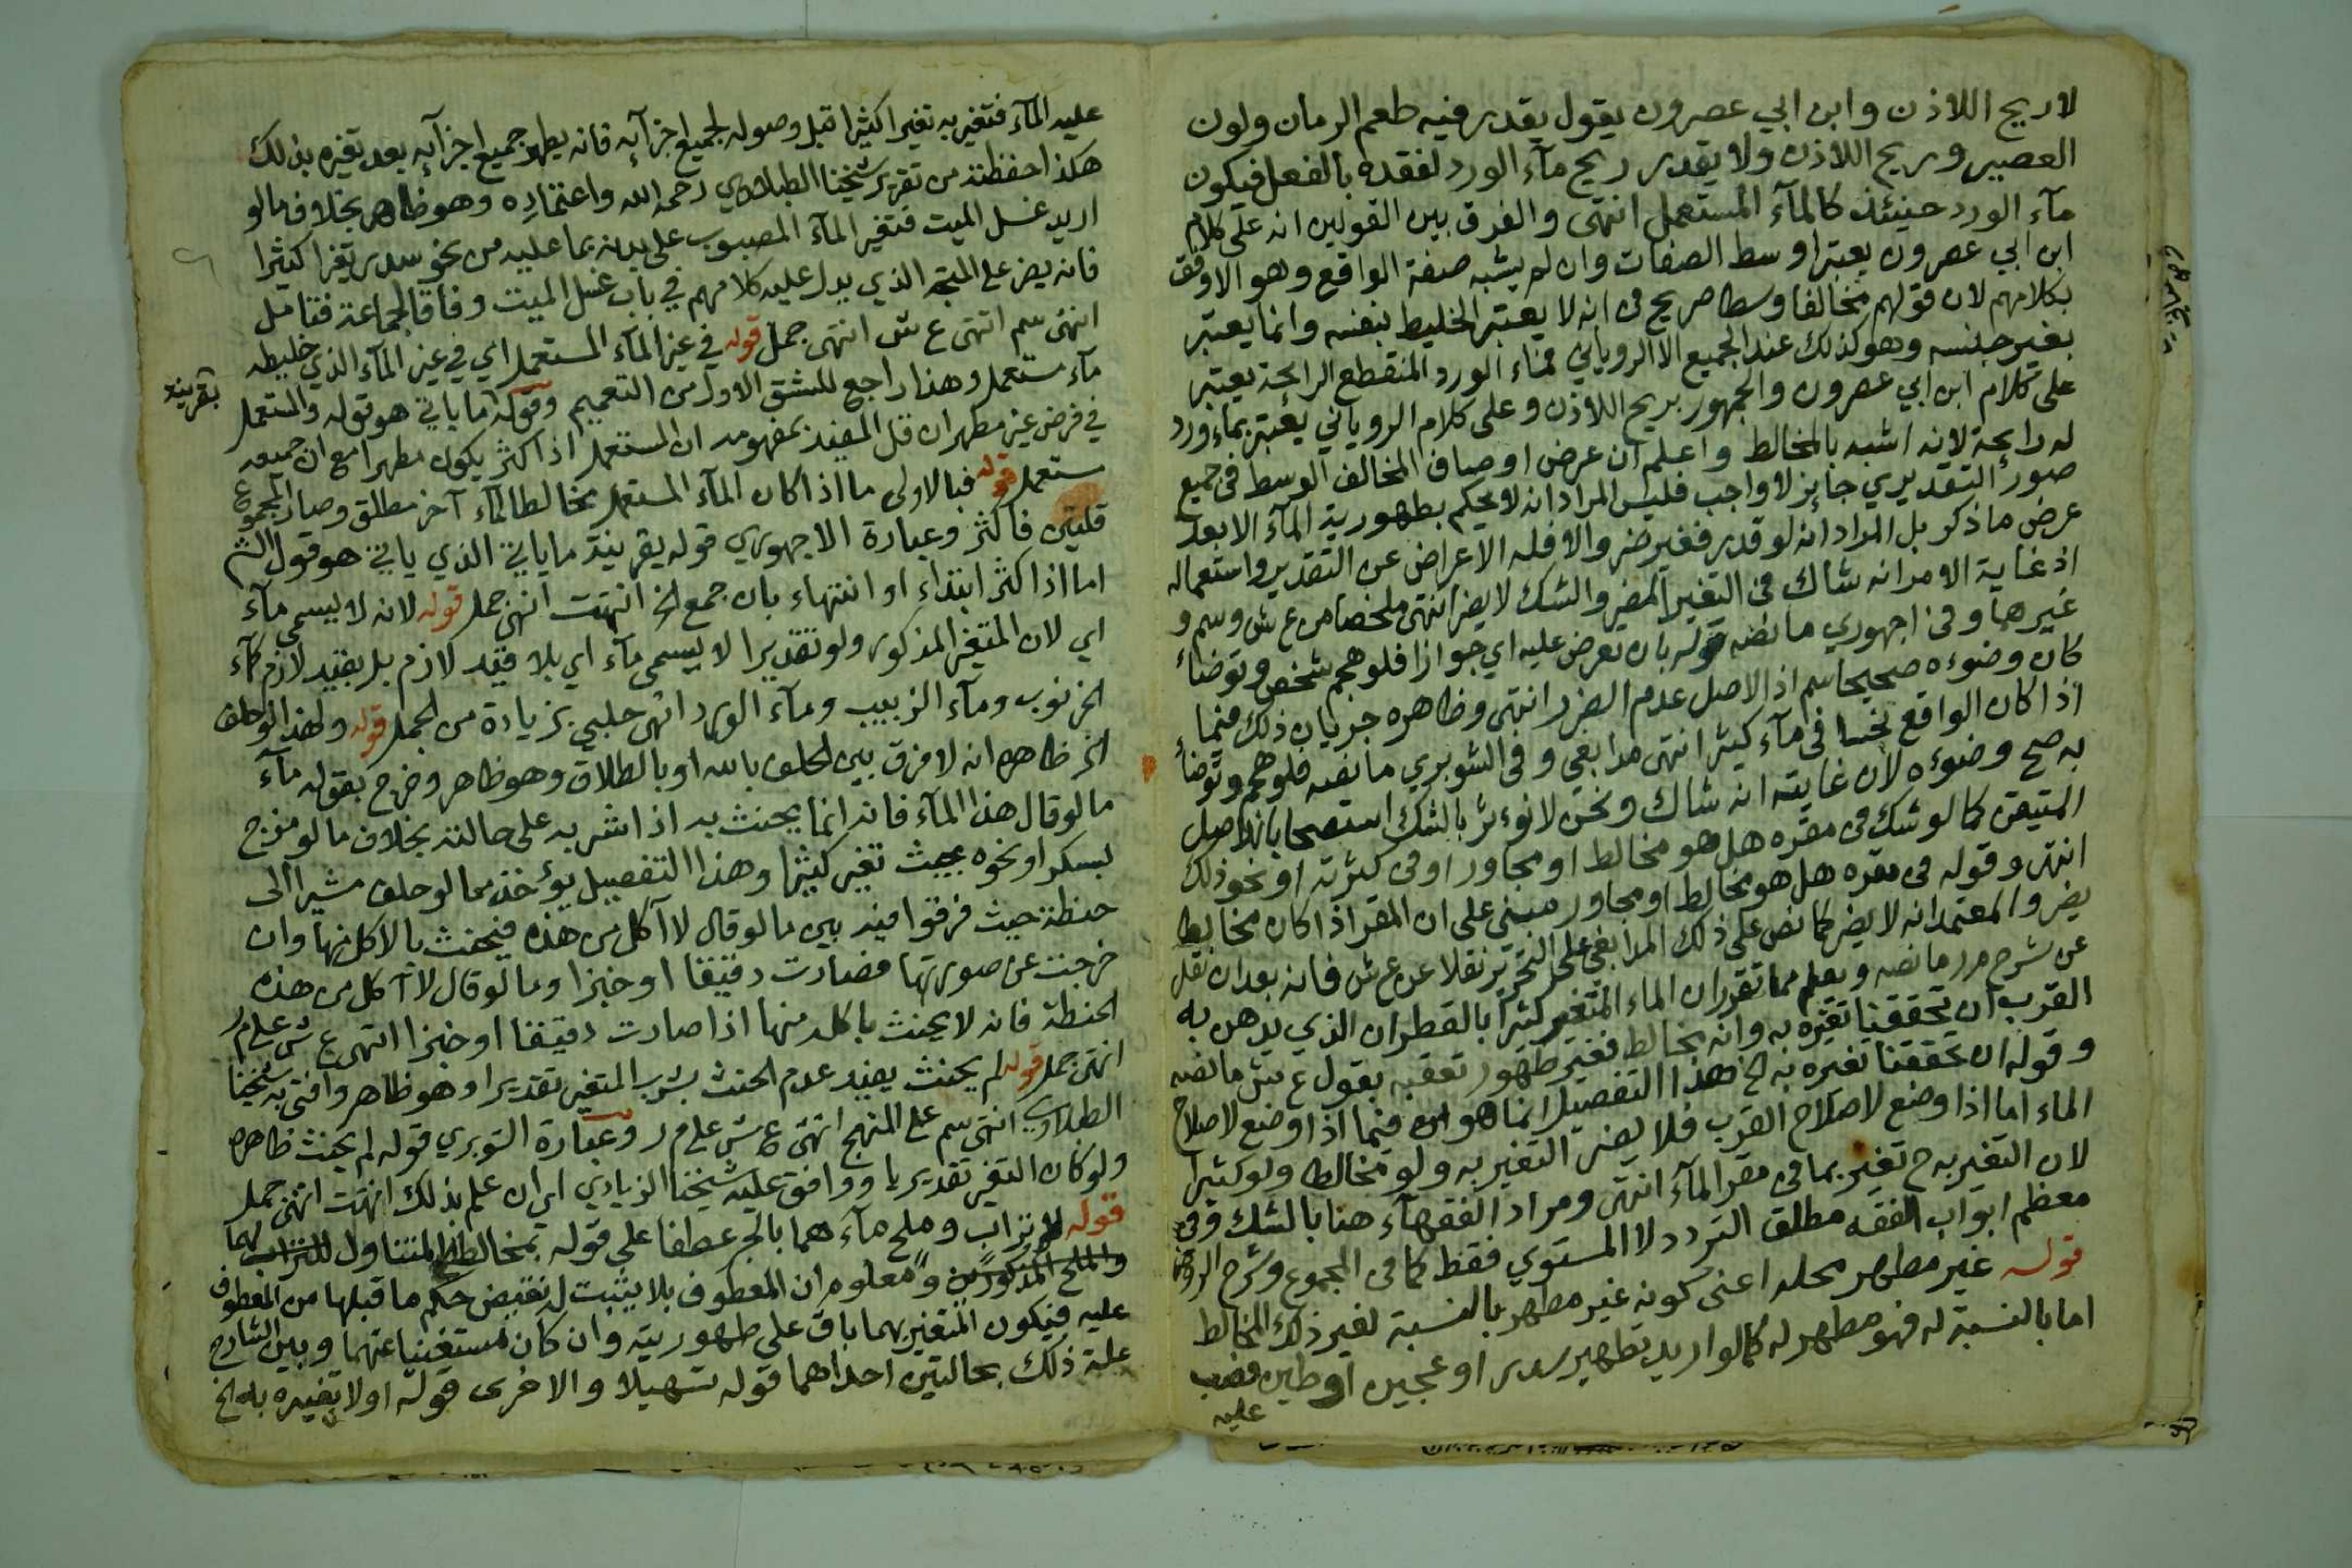 لا ريح اللاذن وابن ابي عصرون يقول يقدر فيه طعم الرمان ولون
العصير وريح اللاذن ولا يقدر ريح مآء الورد لفقده بالفعل فيكون
مآء الورد حينئذ كالمآء المستعمل انتهى والفرق بين القولين انه على كلام
ابن ابي عصرون يعتبر اوسط الصفات وان لم يشبه صفة الواقع وهو الاوفق
بكلامهم لان قولهم مخالفا وسطا صريح فى انه لا يعتبر الخليط بنفسه وانما يعتبر
بغير جنسه وهو كذلك عند الجميع الا الروياني فماء الورد المنقطع الرائحة يعتبر
على كلام ابن ابي عصرون والجمهور بريح اللاذن وعلى كلام الروياني يعتبر بماء ورد
له رائحة لانه اشبه بالمخالط واعلم ان عرض اوصاف المخالف الوسط فى جميع
صور التقديري جايز لا واجب فليس المراد انه لا يحكم بطهورية المآء الا بعد
عرض ما ذكر بل المراد انه لو قدر فغير ضر والا فله الاعراض عن التقدير واستعماله
اذ غاية الامر انه شاك فى التغير المضر والشك لا يضر انتهى ملخصا من ع ش وسم و
غيرها وفى اجهوري ما نصه قوله بان نعرض عليه اي جوازا فلو هجم شخص وتوضأ
كان وضوءه صحيحا سم اذ الاصل عدم الضرر انتهى وظاهره جريان ذلك فيما
اذا كان الواقع نجسا فى مآء كثير انتهى مدابغي وفى الشوبري ما نصه فلو هجم وتوضأ
به صح وضوءه لان غايته انه شاك ونحن لا نوءثر بالشك استصحابا بالاصل
المتيقن كما لو شك فى مقره هل هو مخالط او مجاور او فى كثرته او نحو ذلك
انتهى وقوله فى مقره هل هو مخالط او مجاور مبني على ان المقر اذا كان مخالطا
يضر والمعتمد انه لا يضر كما نص على ذلك المدابغي على التحرير نقلا عن ع ش فانه بعد ان نقل
عن شرح م ر ما نصه ويعلم مما تقرر ان الماء المتغير كثيرا بالقطران الذي يدهن به
القرب ان تحققنا تغيره به وانه مخالط فغير طهور تعقبه بقول ع ش ما نصه
وقوله ان تحققنا تغيره به الخ هذا التفصيل انما هو فيما اذا وضع لاصلاح
الماء اما اذا وضع لاصلاح القرب فلا يضر التغير به ولو مخالطا ولو كثيرا
لان التغير به ح تغير بما فى مقر المآء انتهى ومراد الفقهآء هنا بالشك وفى
معظم ابواب الفقه مطلق التردد لا المستوي فقط كما فى المجموع وشرح الروض
قوله غير مطهر محله اعنى كونه غير مطهر بالنسبة لغير ذلك المخالط
اما بالنسبة له فهو مطهر له كما لو اريد تطهير سدر او عجين او طين فصب
عليه
عليه المآء فتغير به تغيرا كثيرا قبل وصوله لجميع اجزآئه فانه يطهر جميع اجزآئه بعد تغيره بذلك
هكذا حفظته من تقرير شيخنا الطبلاوي رحمه الله واعتماده وهو ظاهر بخلاف ما لو
اريد غسل الميت فتغير المآء المصبوب على بدنه بما عليه من نحو سدر تغيرا كثيرا
فانه يضر على المتجه الذي يدل عليه كلامهم في باب غسل الميت وفاقا لجماعة فتامل
انتهى سم انتهى ع ش انتهى جمل قوله في غير المآء المستعمل اي في غير المآء الذي خليطه
مآء مستعمل وهذا راجع للشق الاول من التعميم وقوله اما ياتي هو قوله والمستعمل
بقرينة
في فرض غير مطهر ان قل المفيد بمفهومه ان المستعمل اذا كثر يكون مطهرا مع ان جميعه
مستعمل قوله فبالاولى ما اذا كان المآء المستعمل مخالطا لمآء آخر مطلق وصار المجموع
قلتين فاكثر وعبارة الاجهوري قوله بقرينة ما ياتي الذي ياتي هو قول الش
اما اذا كثر ابتداء او انتهاء بان جمع الخ انتهت انتهى جمل قوله لانه لا يسمى مآء
اي لان المتغير المذكور ولو تقديرا لا يسمى مآء اي بلا قيد لازم بل بقيد لازم كمآء
الخرنوب ومآء الزبيب ومآء الورد انتهى حلبي بزيادة من الجمل قوله ولهذا لو حلف
الخ ظاهره انه لا فرق بين الحلف بالله او بالطلاق وهو ظاهر وخرج بقوله مآء
ما لو قال هذا المآء فانه انما يحنث به اذا شربه على حالته بخلاف ما لو مزج
بسكر او نحوه بحيث تغير كثيرا وهذا التفصيل يؤخذ مما لو حلف مشيرا الى
حنطة حيث فرقوا فيه بين ما لو قال لا آكل من هذه فيحنث بالاكل منها وان
خرجت عن صورتها فصارت دقيقا او خبزا وما لو قال لا آكل من هذه
الحنطة فانه لا يحنث باكله منها اذا صارت دقيقا او خبزا انتهى ع ش على م ر
انتهى جمل قوله لم يحنث يفيد عدم الحنث بشرب المتغير تقديرا وهو ظاهر وافتى به شيخنا
الطبلاوي انتهى سم على المنهج انتهى ع ش على م ر وعبارة الشوبري قوله لم يحنث ظاهره
ولو كان التغير تقديريا ووافق عليه شيخنا الزيادي اي ان علم بذلك انتهت انتهى جمل
قوله لا تراب وملح مآء هما بالجر عطفا على قوله بمخالط المتناول للتراب لهما
والملح المذكورين ومعلوم ان المعطوف بلا يثبت له نقيض حكم ما قبلها من المعطوف
عليه فيكون المتغير بهما باق على طهوريته وان كان مستغنيا عنهما وبين الشارح
علة ذلك بحالتين احداهما قوله تسهيلا والاخرى قوله اولا تغيره به الخ